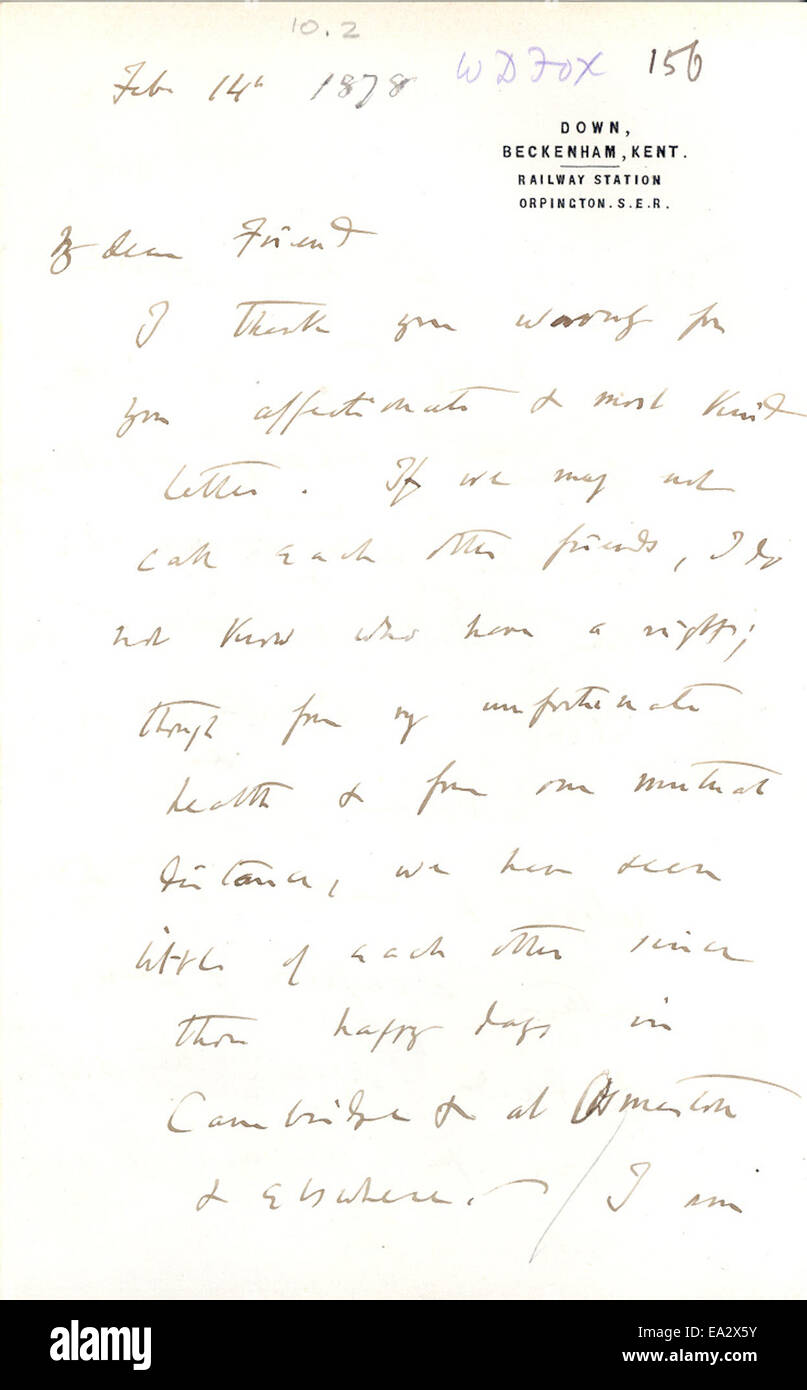 10.2
Feb 14th 1878 W D Fox 156
DOWN,
BECKENHAM, KENT.
RAILWAY STATION
ORPINGTON. S.E.R.
My dear Friend
I thank you warmly for
your affectionate & most kind
letter. If we may not
call each other friends, I do
not know who have a right;
though from my unfortunate
health & from our mutual
distance, we have seen
little of each other since
those happy days in
Cambridge & at Osmaston
& elsewhere. — I am
alamy
Image ID: EA2X5Y
www.alamy.com